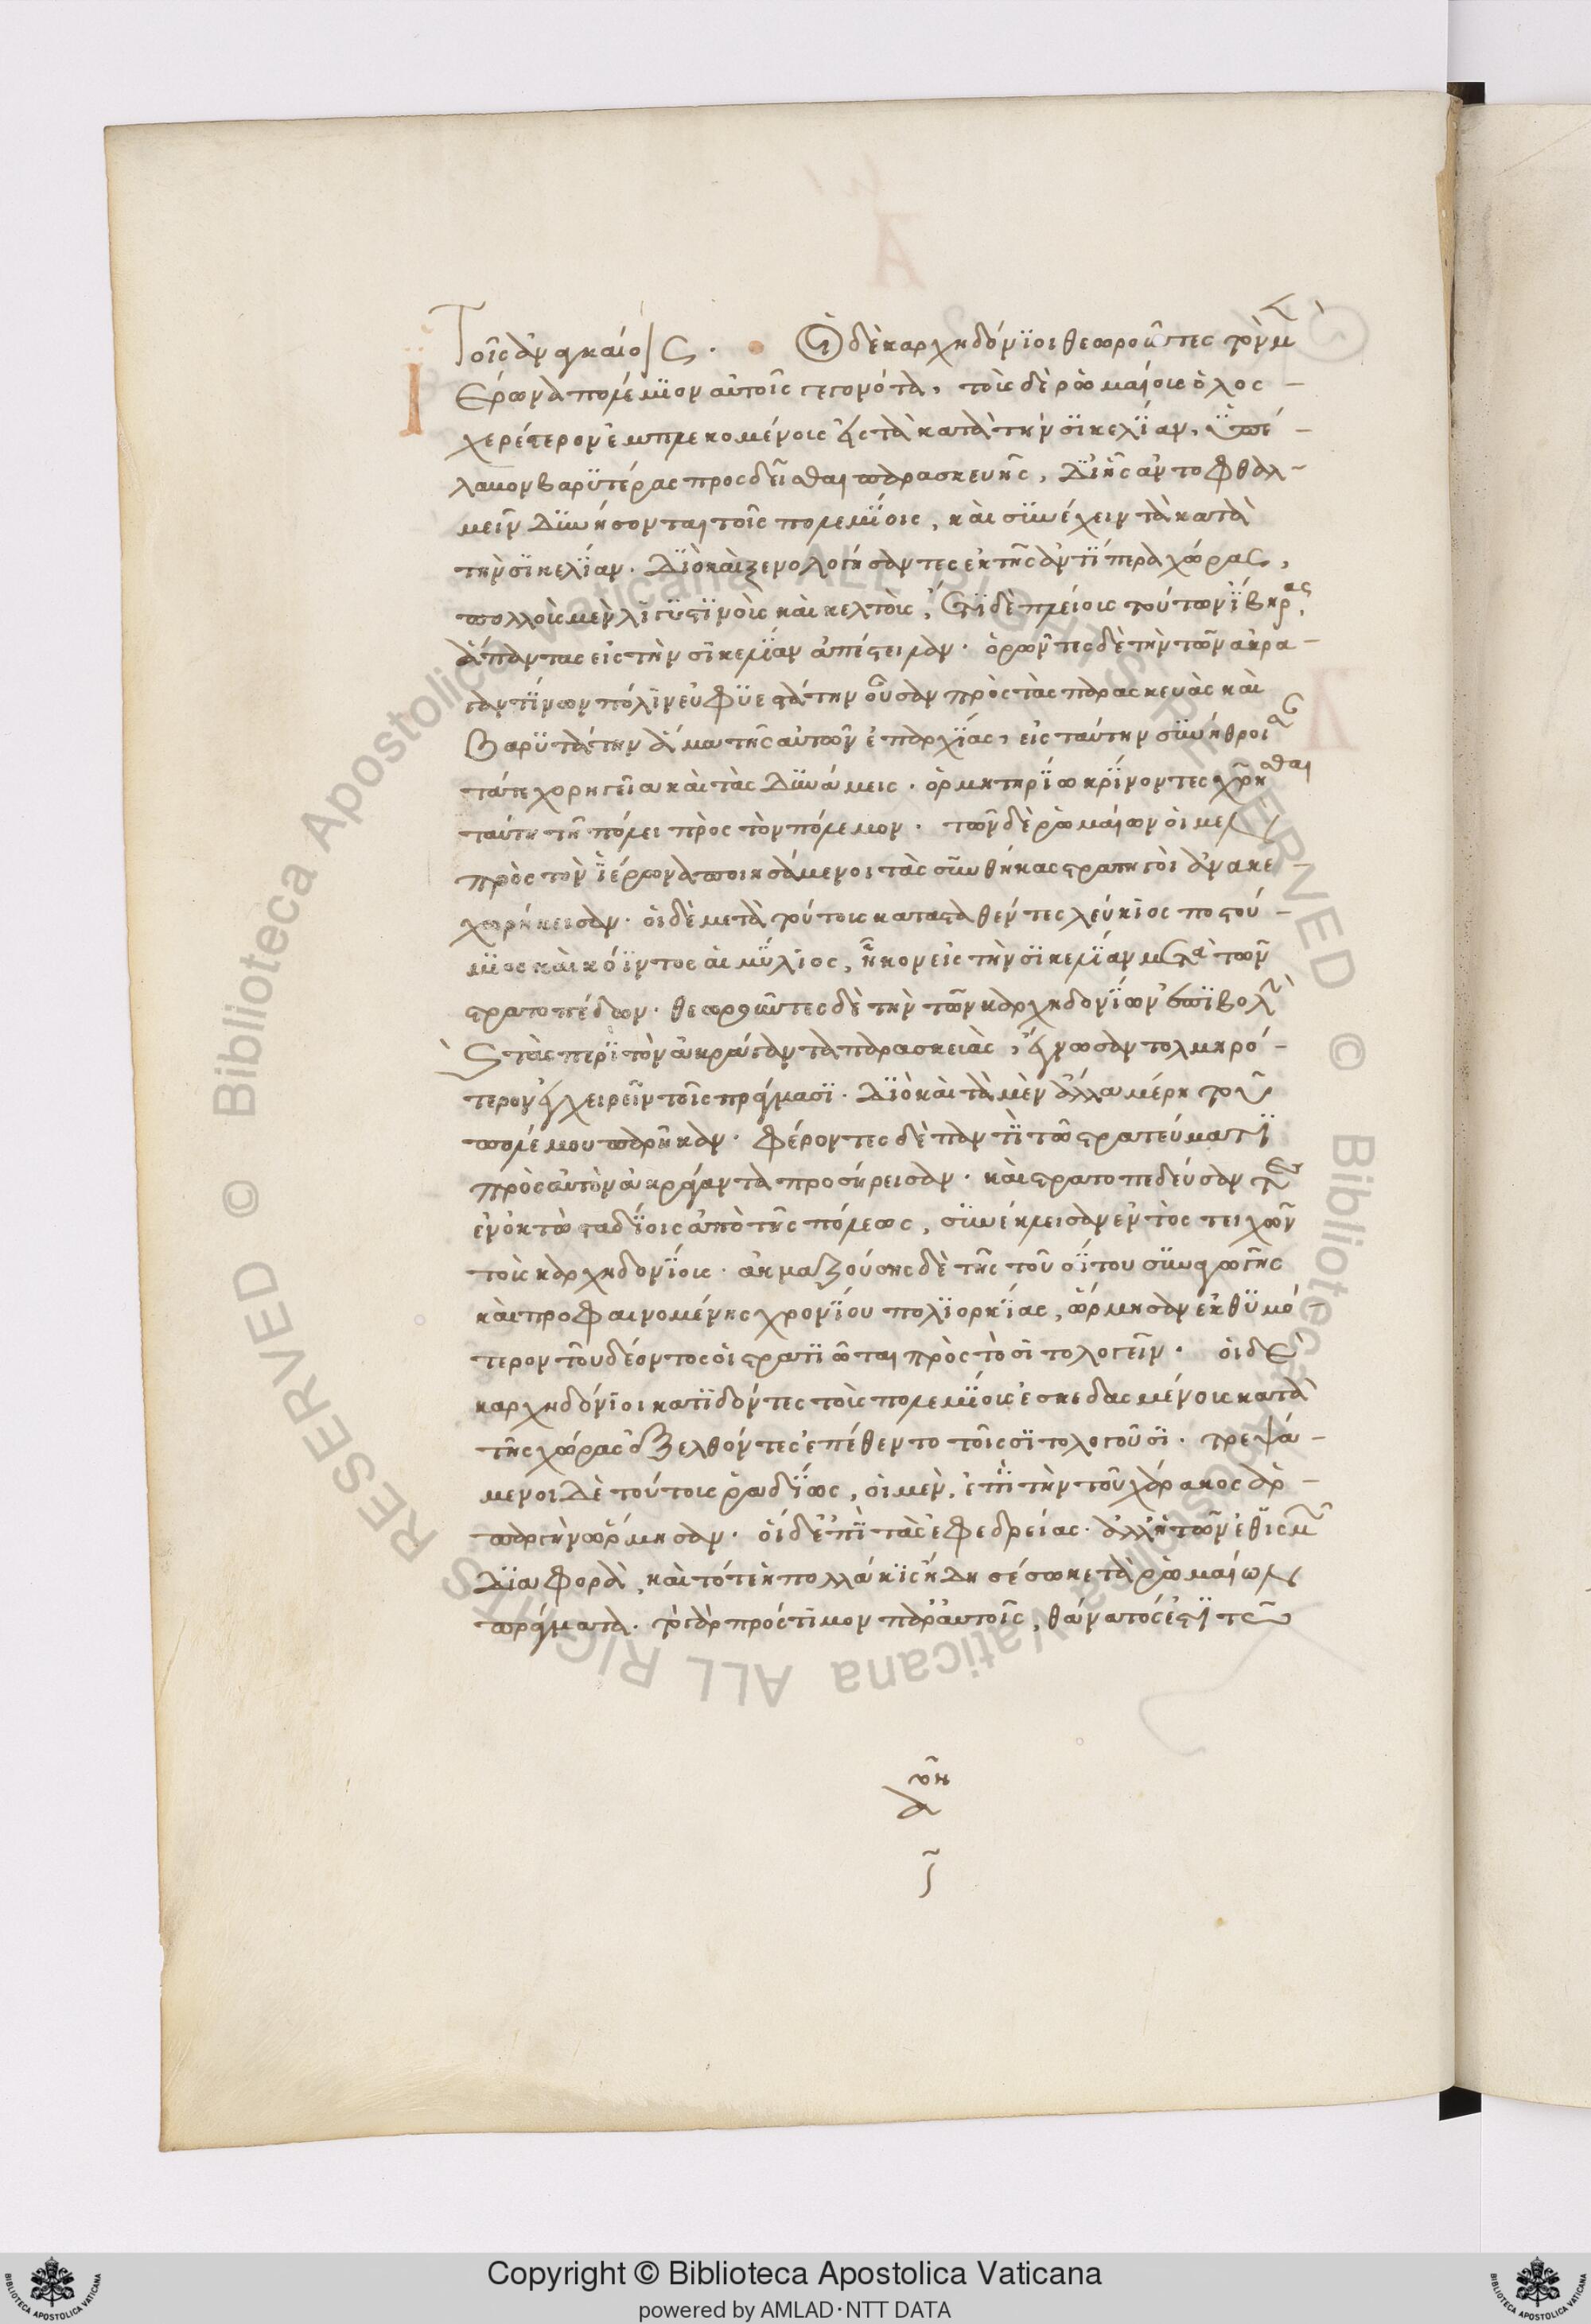 Τοῖς ἀναγκαίοις. Οἱ δὲ καρχηδόνϊοι θεωροῦντες τὸν μὲν
ϊέρωνα πολέμϊον αὐτοῖς γεγονότα, τοὺς δὲ ῥωμαίους ὁλος-
χερέστερον ἐμπλεκομένους εἰς τὰ κατὰ τὴν σϊκελΐαν, ὑπέ-
λαμον βαρϋτέρας προσδεῖσθαι παρασκευῆς, δϊ' ἧς ἀντοφθαλ-
μεῖν δϋνήσονται τοῖς πολεμΐοις, καὶ σϋνέχειν τὰ κατὰ
τὴν σϊκελΐαν. δϊὸ καὶ ξενολογήσαντες ἐκ τῆς ἀντϊπέρα χώρας,
πολλοὺς μὲν λϊγϋστϊνοὺς καὶ κελτοὺς, ἔτϊ δὲ πλείους τούτων ϊβηρας,
ἅπαντας εἰς τὴν σϊκελΐαν ἀπέστειλαν. ὁρῶντες δὲ τὴν τῶν ἀκρα-
γαντΐνων πόλϊν εὐφϋεστάτην οὖσαν πρὸς τὰς παρασκευὰς καὶ
βαρϋτάτην ἅμα τῆς αὐτῶν ἐπαρχΐας, εἰς ταύτην σϋνήθροισαν
τά τε χορηγεῖα καὶ τὰς δϋνάμεις. ὁρμητηρΐω κρΐνοντες χρῆσθαι
ταύτη τῆ πόλει πρὸς τὸν πόλεμον. τῶν δὲ ῥωμαίων οἱ μεν
πρὸς τὸν ϊέρωνα ποιησάμενοι τὰς σϋνθήκας στρατηγοὶ ἀνακε-
χωρήκεισαν. οἱ δὲ μετὰ τούτους κατασταθέντες λεύκϊος ποστού-
μϊος καὶ κόϊντος αἰμΰλϊος, ἧκον εἰς τὴν σϊκελΐαν μετὰ τῶν
στρατοπέδων. θεωροῦντες δὲ τὴν τῶν καρχηδονΐων ἐπϊβολὴν
καὶ τὰς περὶ τὸν ἀκράγαντα παρασκειὰς, ἔγνωσαν τολμηρό-
τερον ἐγχειρεῖν τοῖς πράγμασϊ. δϊὸ καὶ τὰ μὲν ἄλλα μέρη τοῦ
πολέμου παρῆκαν. φέροντες δὲ παντὶ τῶ στρατεύματϊ
πρὸς αὐτὸν ἀκράγαντα προσήρεισαν. καὶ στρατοπεδεύσαντες
ἐν ὀκτὼ σταδΐοις ἀπὸ τῆς πόλεως, σϋνέκλεισαν ἐντὸς τειχῶν
τοὺς καρχηδονΐους. ἀκμαζούσης δὲ τῆς τοῦ σΐτου σϋναγωγῆς
καὶ προφαινομένης χρονΐου πολϊορκΐας, ὥρμησαν ἐκθϋμό-
τερον τοῦ δέοντος οἱ στρατϊῶται πρὸς τὸ σϊτολογεῖν. οἱ δὲ
καρχηδόνϊοι κατϊδόντες τοὺς πολεμΐους ἐσκεδασμένους κατὰ
τῆς χώρας ἐξελθόντες ἐπέθεντο τοῖς σϊτολογοῦσϊ. τρεψά-
μενοι δὲ τούτους ῥαδΐως, οἱ μὲν, ἐπὶ τὴν τοῦ χάρακος ἁρ-
παγὴν ὥρμησαν. οἱ δ' ἐπὶ τὰς ἐφεδρείας. ἀλλ' ἡ τῶν ἐθισμῶν
δϊαφορὰ, καὶ τότε κ πολλάκϊς ἤδη σέσωκε τὰ ῥωμαίων
πράγματα. τὸ γὰρ πρόστϊμον παρ' αὐτοῖς, θάνατός ἐστϊ τῶ